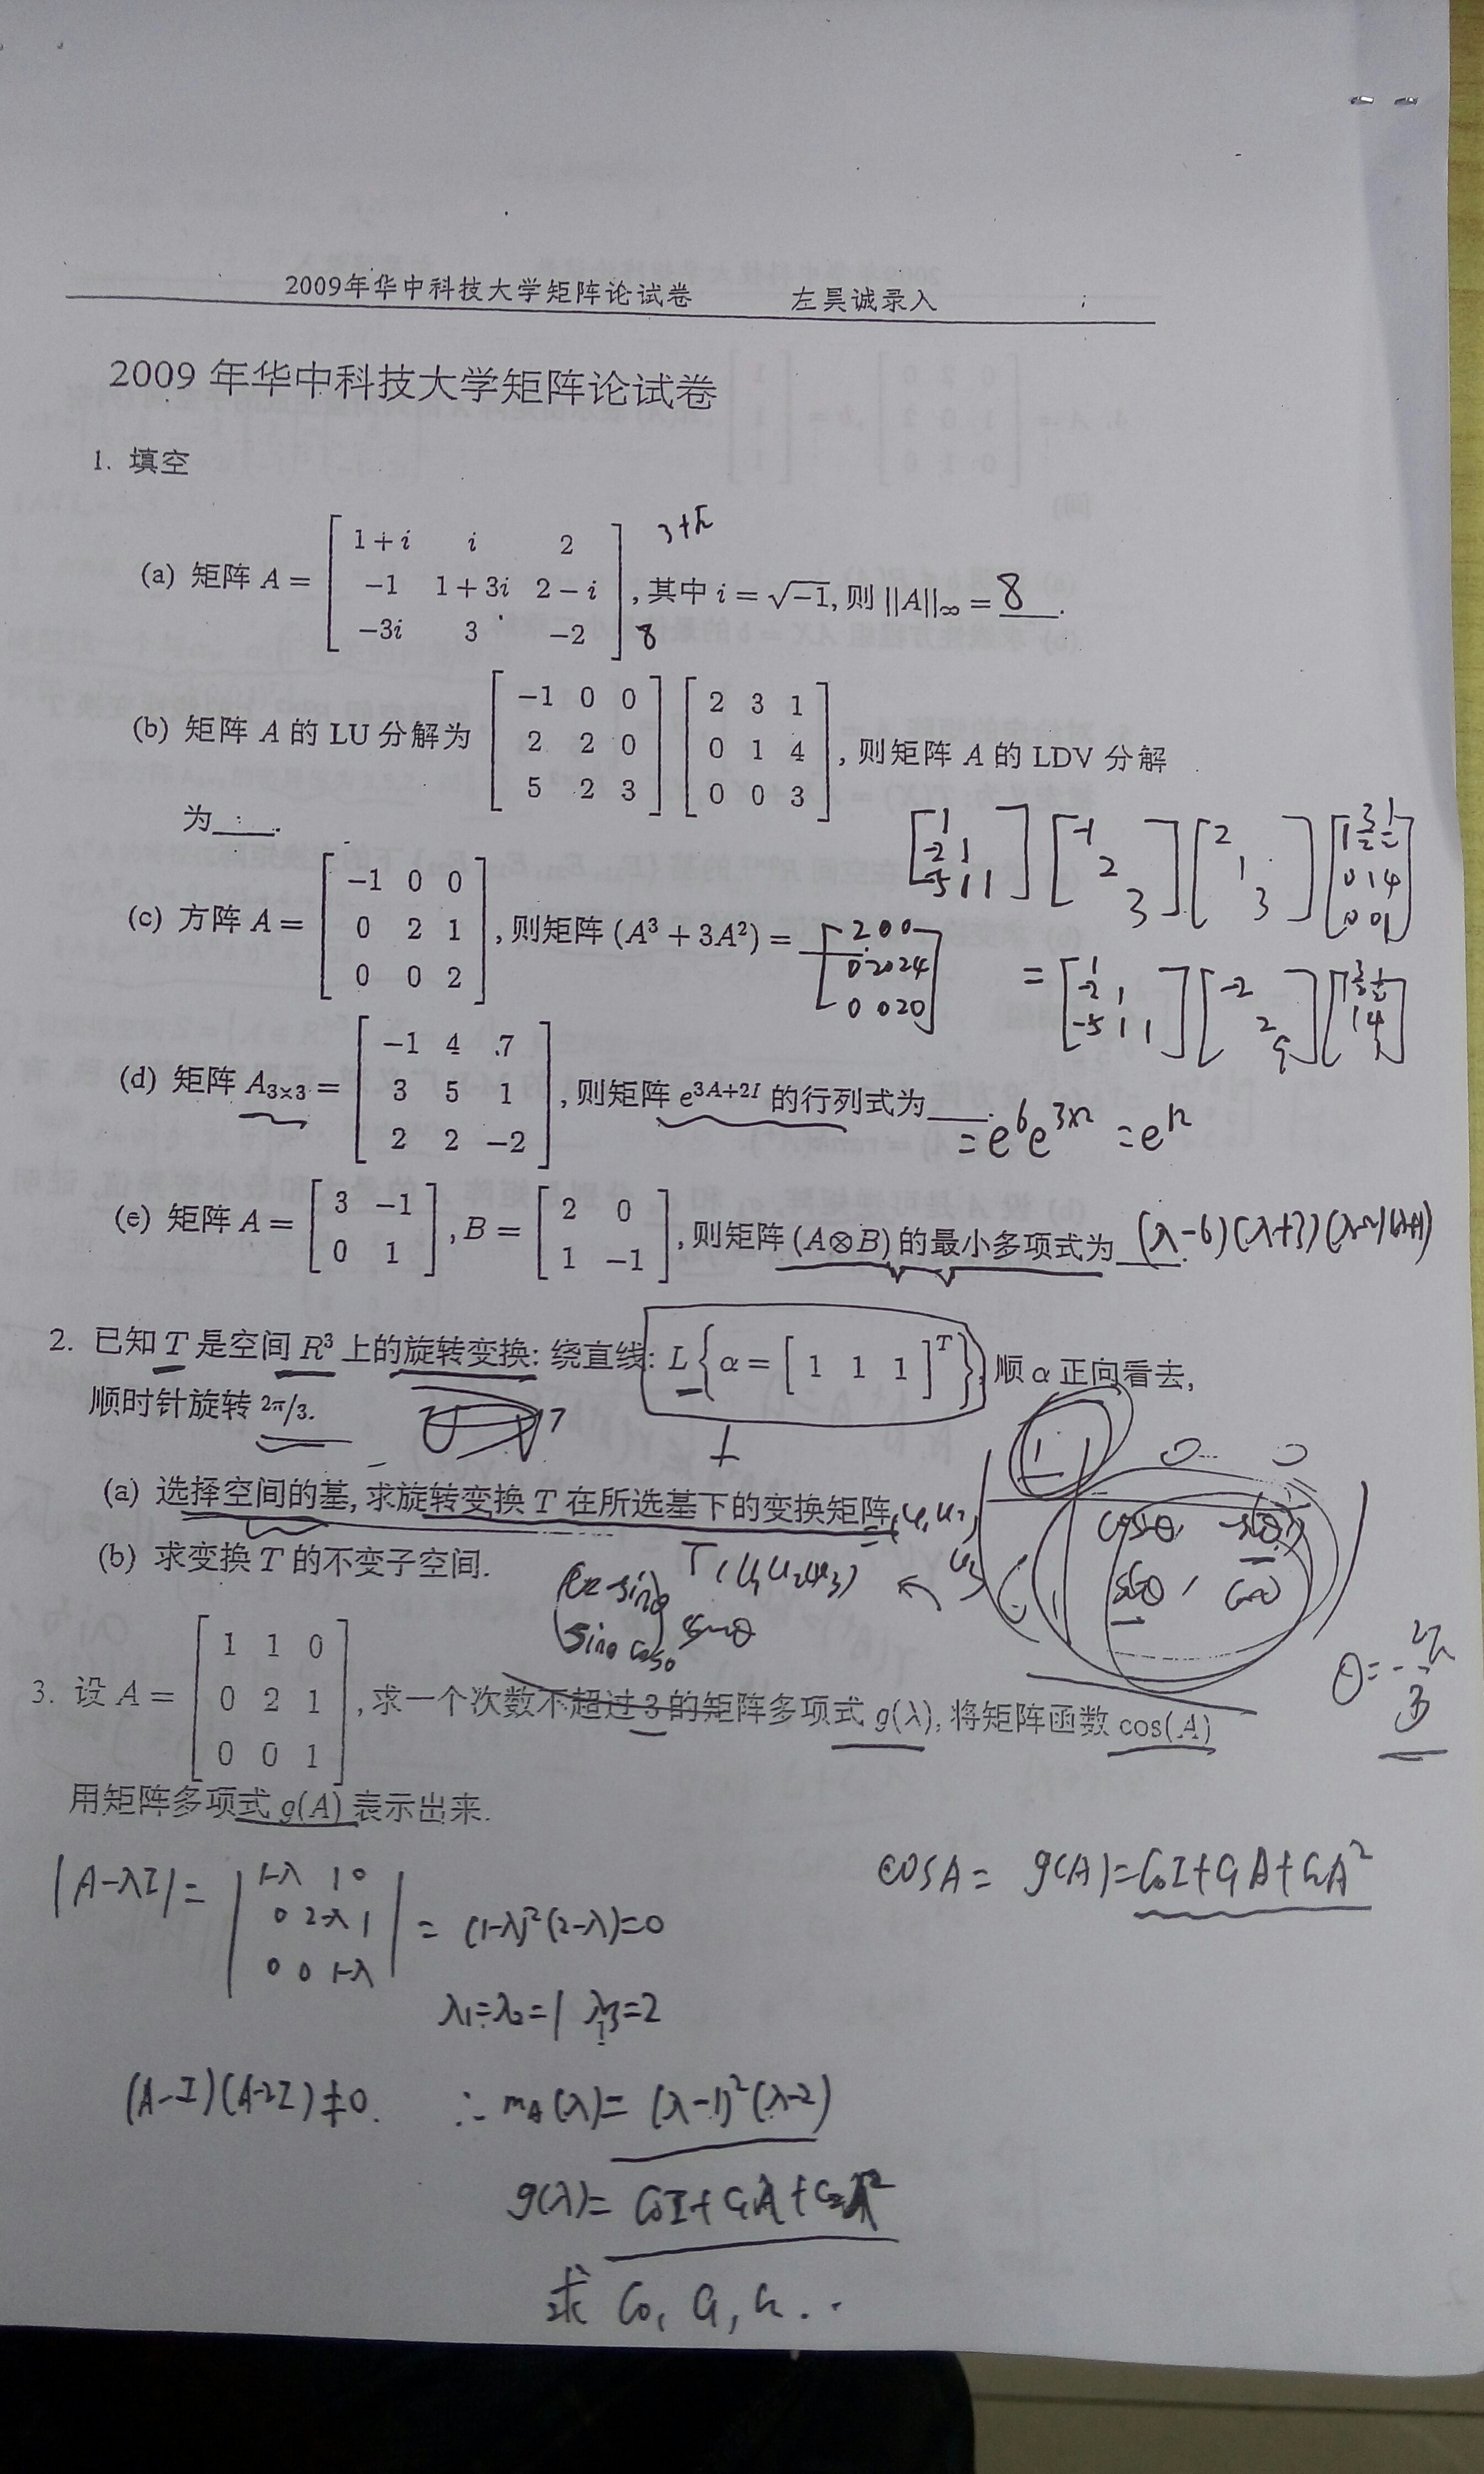 2009年华中科技大学矩阵论试卷 左昊诚录入
2009 年华中科技大学矩阵论试卷
1. 填空
(a) 矩阵 A = [ 1+i i 2 ; -1 1+3i 2-i ; -3i 3 -2 ], 其中 i = √-1, 则 ||A||∞ = 8 .
8
(b) 矩阵 A 的 LU 分解为 [ -1 0 0 ; 2 2 0 ; 5 2 3 ] [ 2 3 1 ; 0 1 4 ; 0 0 3 ], 则矩阵 A 的 LDV 分解
为____.
[ 1 ; -2 1 ; -5 1 1 ] [ -1 ; 2 ; 3 ] [ 2 ; 1 ; 3 ] [ 1 3/2 1/2 ; 0 1 4 ; 0 0 1 ]
(c) 方阵 A = [ -1 0 0 ; 0 2 1 ; 0 0 2 ], 则矩阵 (A³ + 3A²) = [ 2 0 0 ; 0 20 24 ; 0 0 20 ]
= [ 1 ; -2 1 ; -5 1 1 ] [ -2 ; 2 ; 9 ] [ 1 3/2 1/2 ; 1 4 ; 1 ]
(d) 矩阵 A₃ₓ₃ = [ -1 4 7 ; 3 5 1 ; 2 2 -2 ], 则矩阵 e^{3A+2I} 的行列式为____.
= e⁶e^{3×2} = e^{12}
(e) 矩阵 A = [ 3 -1 ; 0 1 ], B = [ 2 0 ; 1 -1 ], 则矩阵 (A⊗B) 的最小多项式为____. (λ-6)(λ+3)(λ-2)(λ+1)
2. 已知 T 是空间 R³ 上的旋转变换: 绕直线: L{α = [ 1 1 1 ]^T}, 顺 α 正向看去,
顺时针旋转 2π/3.
(a) 选择空间的基, 求旋转变换 T 在所选基下的变换矩阵.
(b) 求变换 T 的不变子空间.
T(u₁ u₂ u₃)
cosθ -sinθ
sinθ cosθ
θ = -2π/3
3. 设 A = [ 1 1 0 ; 0 2 1 ; 0 0 1 ], 求一个次数不超过 3 的矩阵多项式 g(λ), 将矩阵函数 cos(A)
用矩阵多项式 g(A) 表示出来.
|A-λI| = | 1-λ 1 0 ; 0 2-λ 1 ; 0 0 1-λ | = (1-λ)²(2-λ)=0
cosA = g(A)=C₀I+C₁A+C₂A²
λ₁=λ₂=1 λ₃=2
(A-I)(A-2I)≠0. ∴ m_A(λ)= (λ-1)²(λ-2)
g(λ)= C₀I+C₁λ+C₂λ²
求 C₀, C₁, C₂ ..